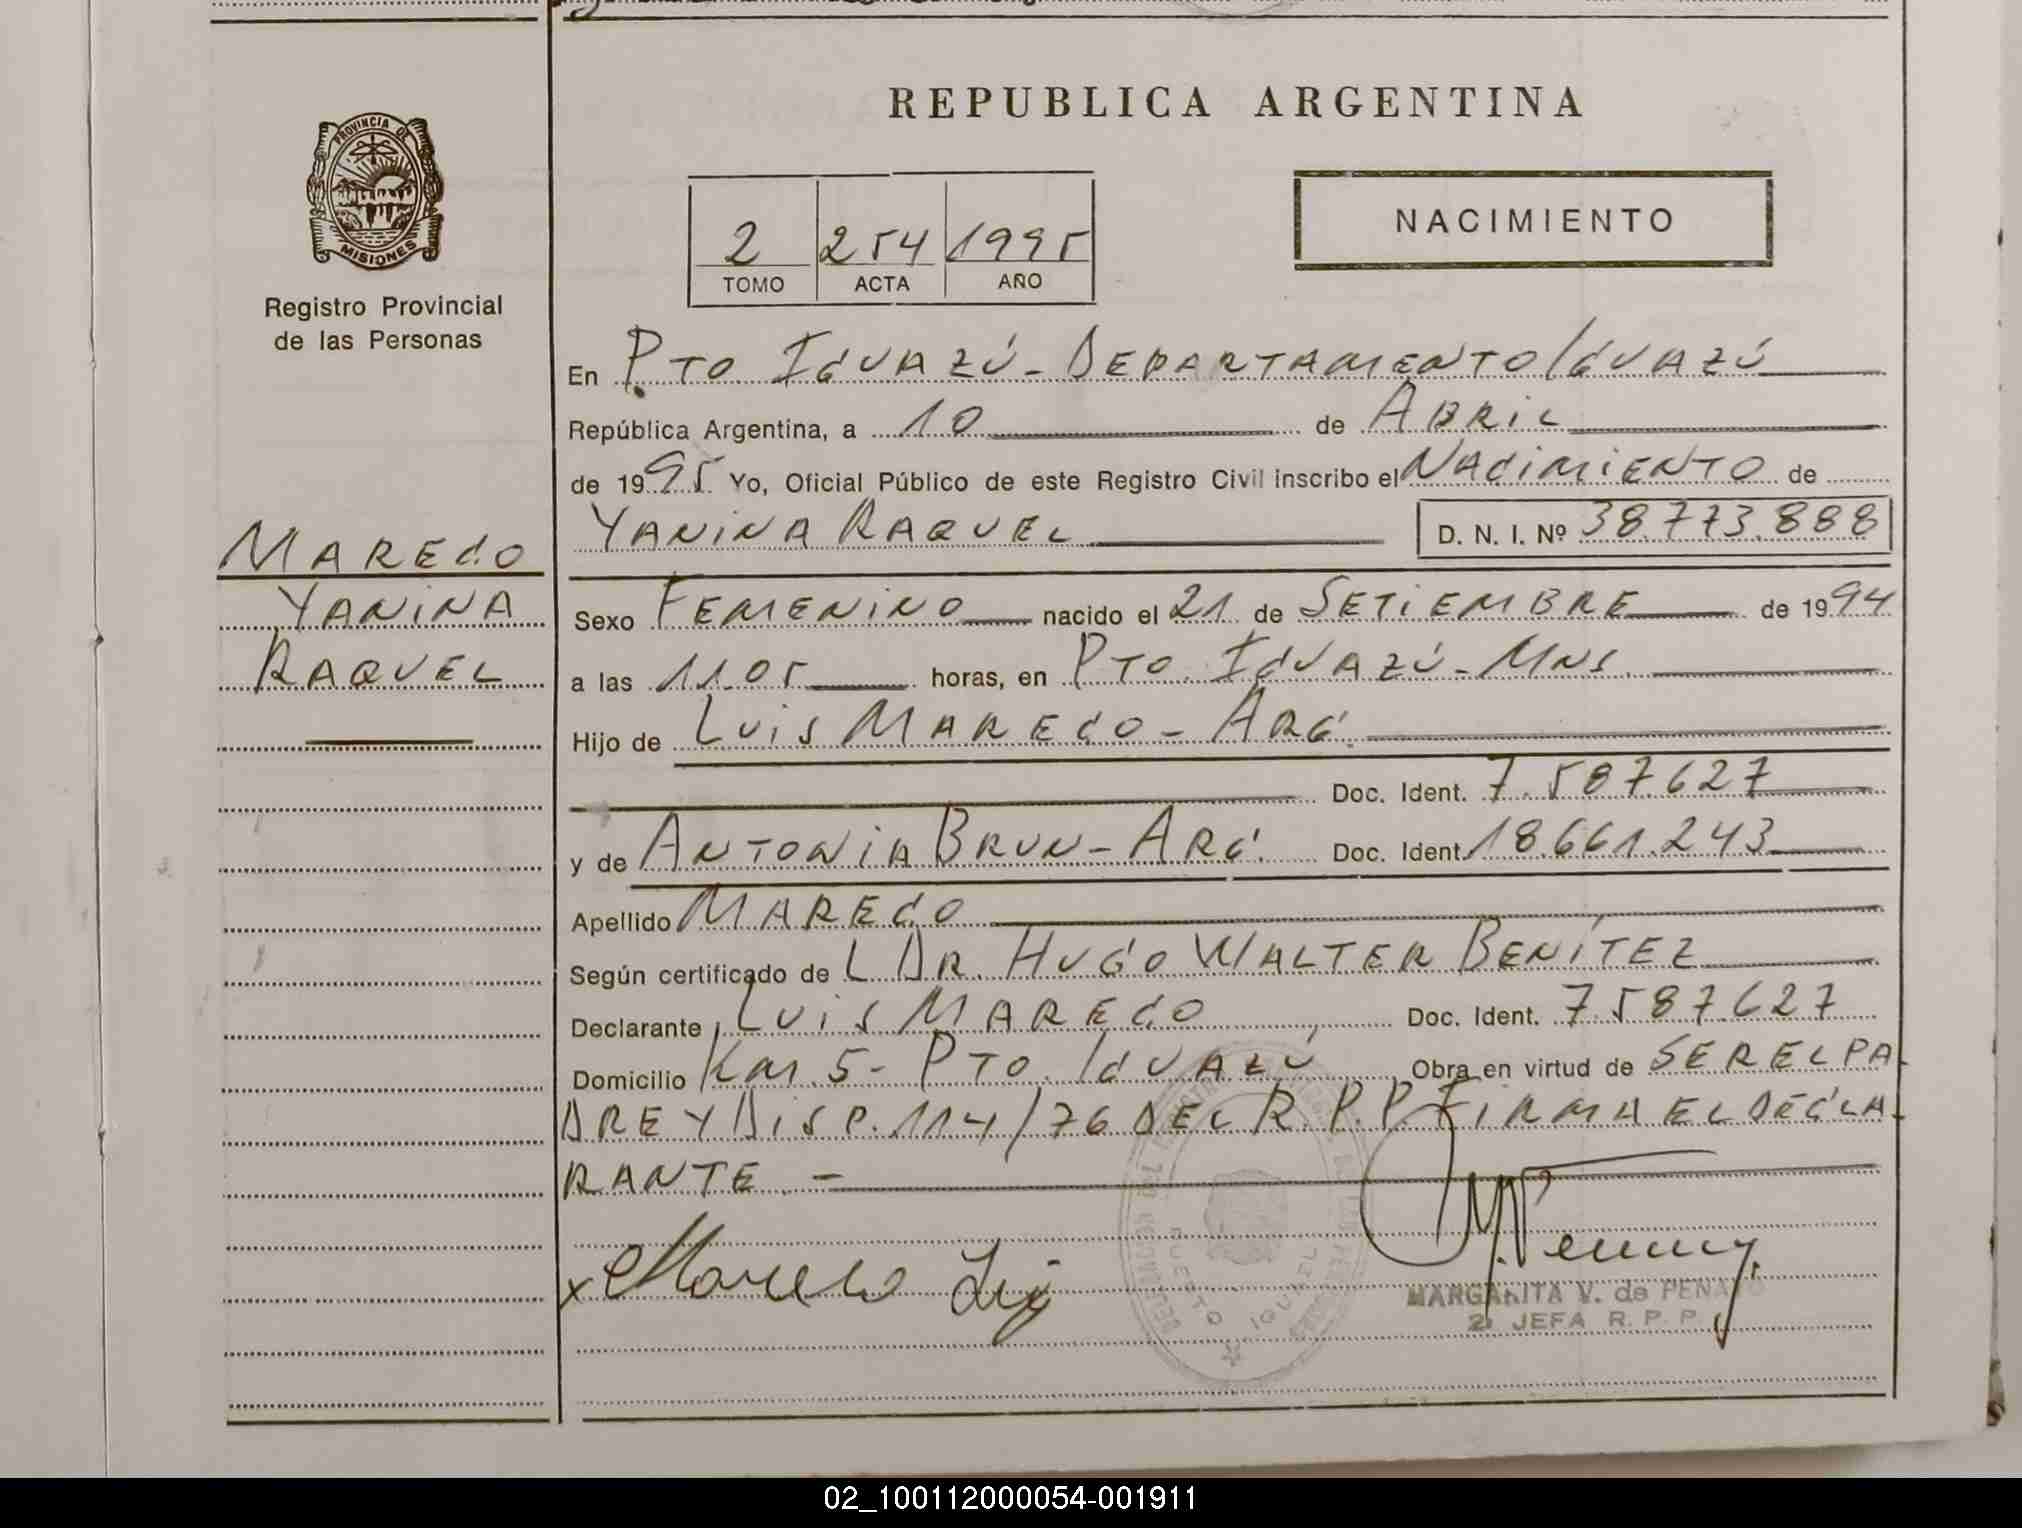 PROVINCIA DE
MISIONES
Registro Provincial
de las Personas
MARECO
YANINA
RAQUEL
REPUBLICA ARGENTINA
2 254 1995
TOMO ACTA AÑO
NACIMIENTO
En PTO IGUAZÚ - DEPARTAMENTO IGUAZÚ
República Argentina, a 10 de ABRIL
de 1995 Yo, Oficial Público de este Registro Civil inscribo el NACIMIENTO de
YANINA RAQUEL D. N. I. Nº 38.773.888
Sexo FEMENINO nacido el 21 de SETIEMBRE de 1994
a las 11.05 horas, en PTO. IGUAZÚ - MNS.
Hijo de LUIS MARECO - ARG.
Doc. Ident. 7.587.627
y de ANTONIA BRUN - ARG. Doc. Ident. 18.661.243
Apellido MARECO
Según certificado de L DR. HUGO WALTER BENÍTEZ
Declarante LUIS MARECO Doc. Ident. 7.587.627
Domicilio Km. 5 - PTO. IGUAZÚ Obra en virtud de SER EL PA-
DRE Y DISP. 114/76 DEL R.P.P. FIRMA EL DECLA-
RANTE. -
x Mareco Luis
MARGARITA V. de PENAYO
2ª JEFA R. P. P.
PUERTO IGUAZU
02_100112000054-001911